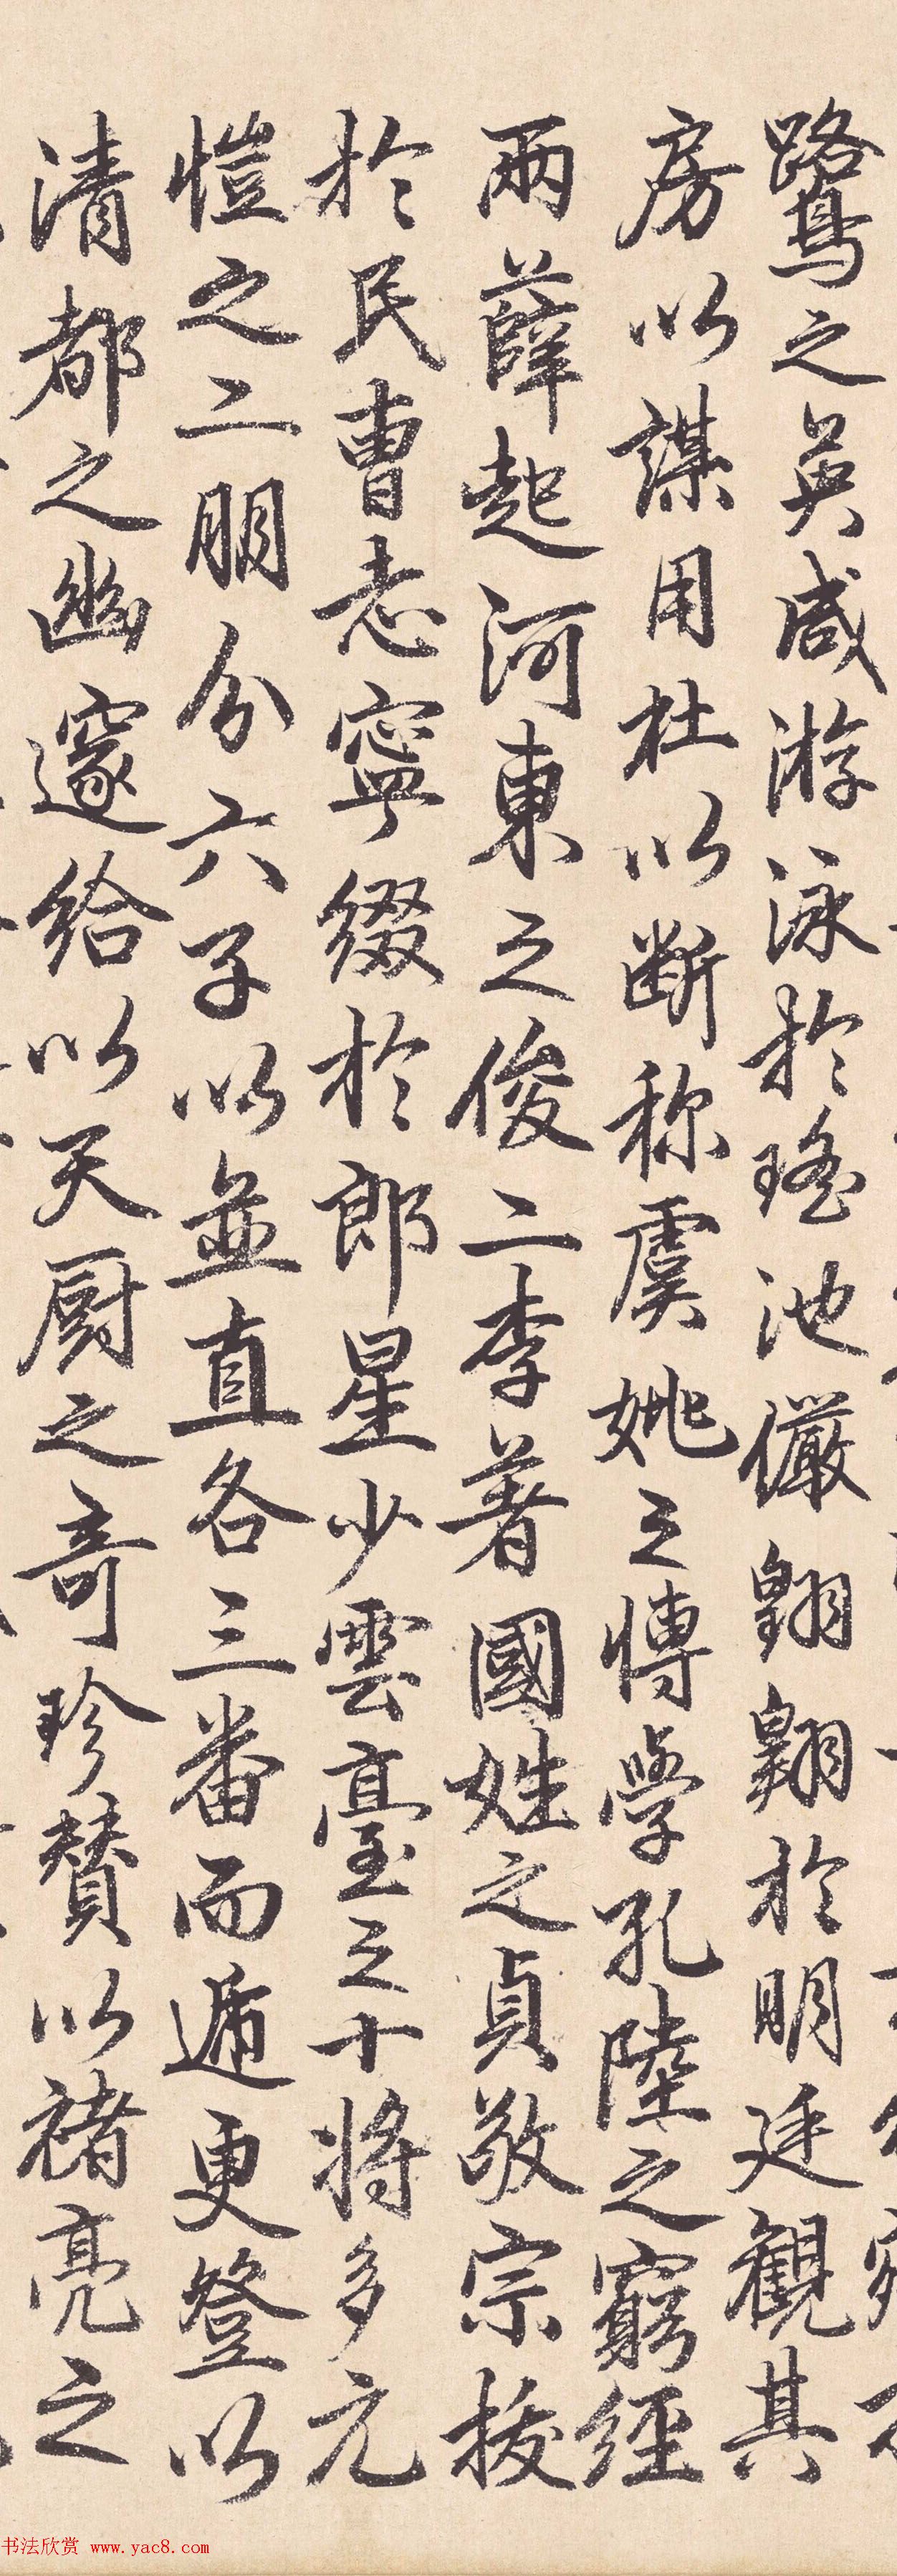 鷺之英咸游泳於瑤池儼翱翱於明廷觀其
房以謀用杜以断称虞姚之博學孔陸之窮經
兩薛起河東之俊二李著國姓之貞敬宗拔
於民曹志寧綴於郎星少雲臺之十将多元
愷之二朋分六子以並直各三番而遞更登以
清都之幽邃給以天厨之奇珍賛以褚亮之
书法欣赏 www.yac8.com